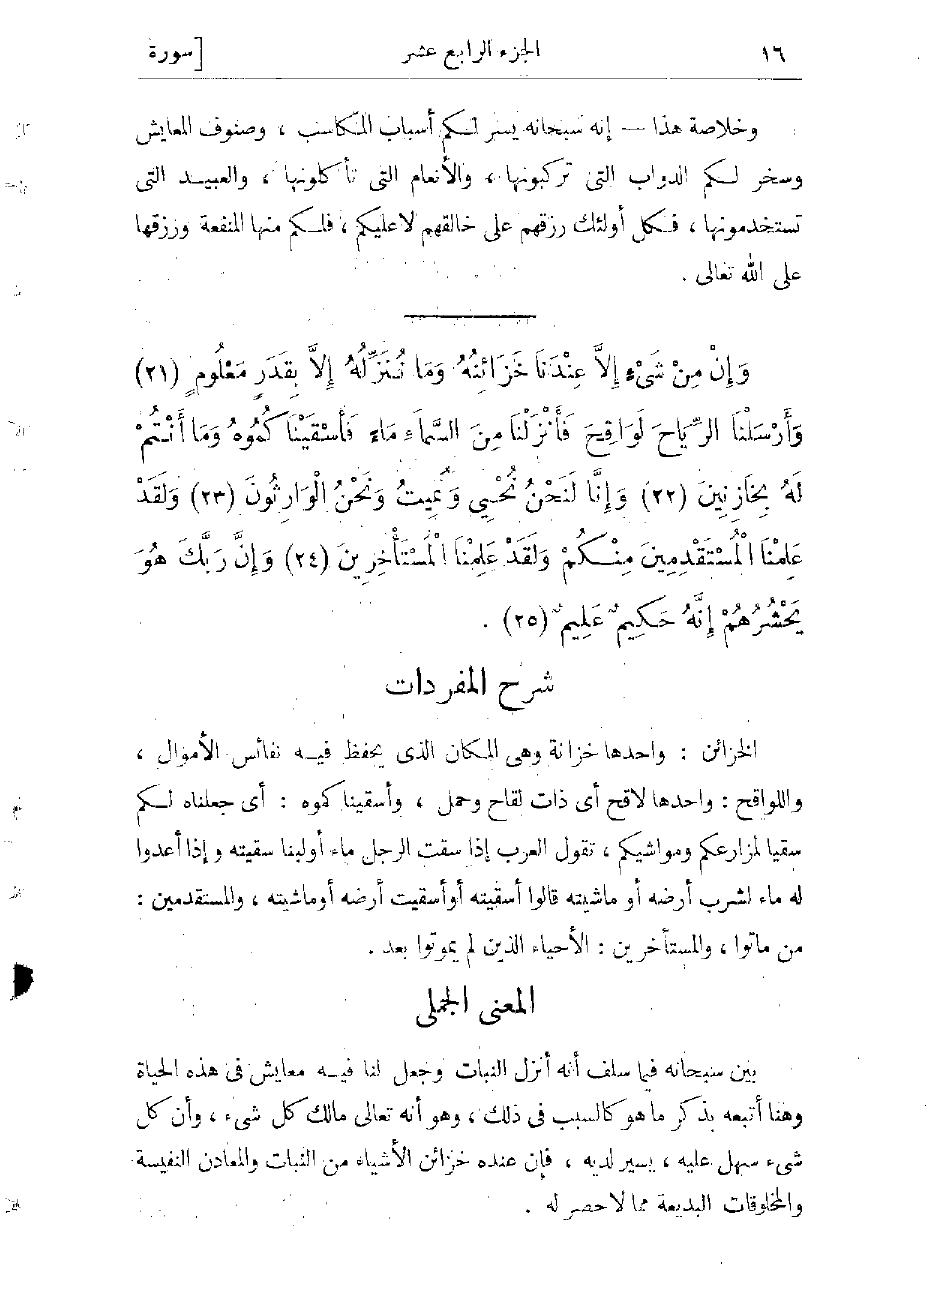 ١٦ الجزء الرابع عشر [سورة
وخلاصة هذا — إنه سبحانه يسر لكم أسباب المكاسب ، وصنوف المعايش
وسخر لكم الدواب التى تركبونها ، والأنعام التى تأكلونها ، والعبيد التى
تستخدمونها ، فكل أولئك رزقهم على خالقهم لا عليكم ، فلكم منها المنفعة ورزقها
على الله تعالى .
وَإِنْ مِنْ شَىْءٍ إِلاَّ عِنْدَنَا خَزَائِنُهُ وَمَا نُنَزِّلُهُ إِلاَّ بِقَدَرٍ مَعْلُومٍ (٢١)
وَأَرْسَلْنَا الرِّيَاحَ لَوَاقِحَ فَأَنْزَلْنَا مِنَ السَّمَاءِ مَاءً فَأَسْقَيْنَا كُمُوهُ وَمَا أَنْتُمْ
لَهُ بِخَازِنِينَ (٢٢) وَإِنَّا لَنَحْنُ نُحْيِي وَنُمِيتُ وَنَحْنُ الْوَارِثُونَ (٢٣) وَلَقَدْ
عَلِمْنَا الْمُسْتَقْدِمِينَ مِنْكُمْ وَلَقَدْ عَلِمْنَا الْمُسْتَأْخِرِينَ (٢٤) وَإِنَّ رَبَّكَ هُوَ
يَحْشُرُهُمْ إِنَّهُ حَكِيمٌ عَلِيمٌ (٢٥) .
شرح المفردات
الخزائن : واحدها خزانة وهى المكان الذى يحفظ فيه نفائس الأموال ،
واللواقح : واحدها لاقح أى ذات لقاح وحمل ، وأسقيناكموه : أى جعلناه لكم
سقيا لمزارعكم ومواشيكم ، تقول العرب إذا سقت الرجل ماء أولبنا سقيته وإذا أعدوا
له ماء لشرب أرضه أو ماشيته قالوا أسقيته أوأسقيت أرضه أوماشيته ، والمستقدمين :
من ماتوا ، والمستأخرين : الأحياء الذين لم يموتوا بعد .
المعنى الجملى
بين سبحانه فيما سلف أنه أنزل النبات وجعل لنا فيه معايش فى هذه الحياة
وهنا أتبعه بذكر ما هو كالسبب فى ذلك ، وهو أنه تعالى مالك كل شىء ، وأن كل
شىء سهل عليه ، يسير لديه ، فإن عنده خزائن الأشياء من النبات والمعادن النفيسة
والمخلوقات البديعة مما لا حصر له .